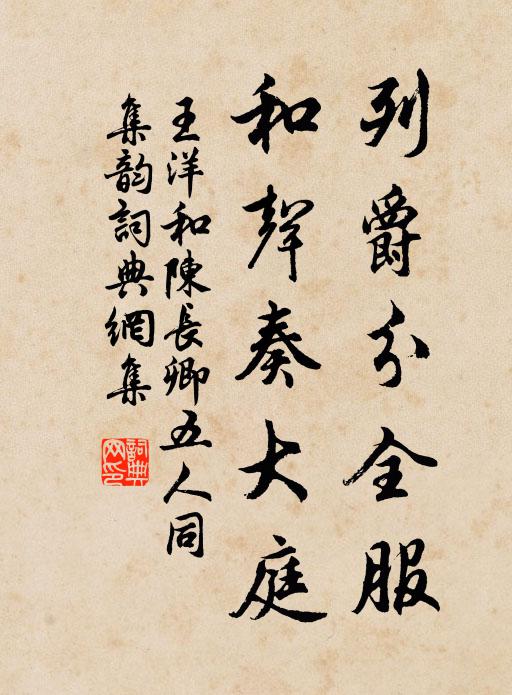 列爵分全服
和聲奏大庭
王洋和陳長卿五人同
集韵詞典網集
詞典網印